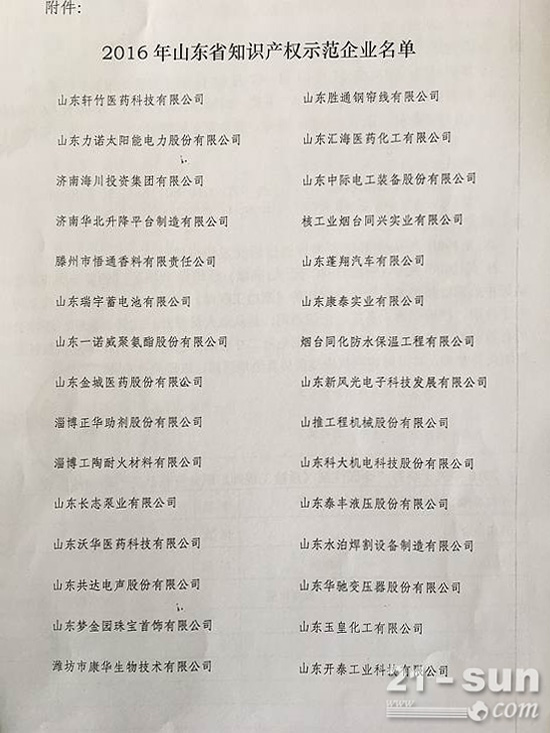 附件:
2016 年山东省知识产权示范企业名单
山东轩竹医药科技有限公司
山东胜通钢帘线有限公司
山东力诺太阳能电力股份有限公司
山东汇海医药化工有限公司
济南海川投资集团有限公司
山东中际电工装备股份有限公司
济南华北升降平台制造有限公司
核工业烟台同兴实业有限公司
滕州市悟通香料有限责任公司
山东蓬翔汽车有限公司
山东瑞宇蓄电池有限公司
山东康泰实业有限公司
山东一诺威聚氨酯股份有限公司
烟台同化防水保温工程有限公司
山东金城医药股份有限公司
山东新风光电子科技发展有限公司
淄博正华助剂股份有限公司
山推工程机械股份有限公司
淄博工陶耐火材料有限公司
山东科大机电科技股份有限公司
山东长志泵业有限公司
山东泰丰液压股份有限公司
山东沃华医药科技有限公司
山东水泊焊割设备制造有限公司
山东共达电声股份有限公司
山东华驰变压器股份有限公司
山东梦金园珠宝首饰有限公司
山东玉皇化工有限公司
潍坊市康华生物技术有限公司
山东开泰工业科技有限公司
21-sun
.com